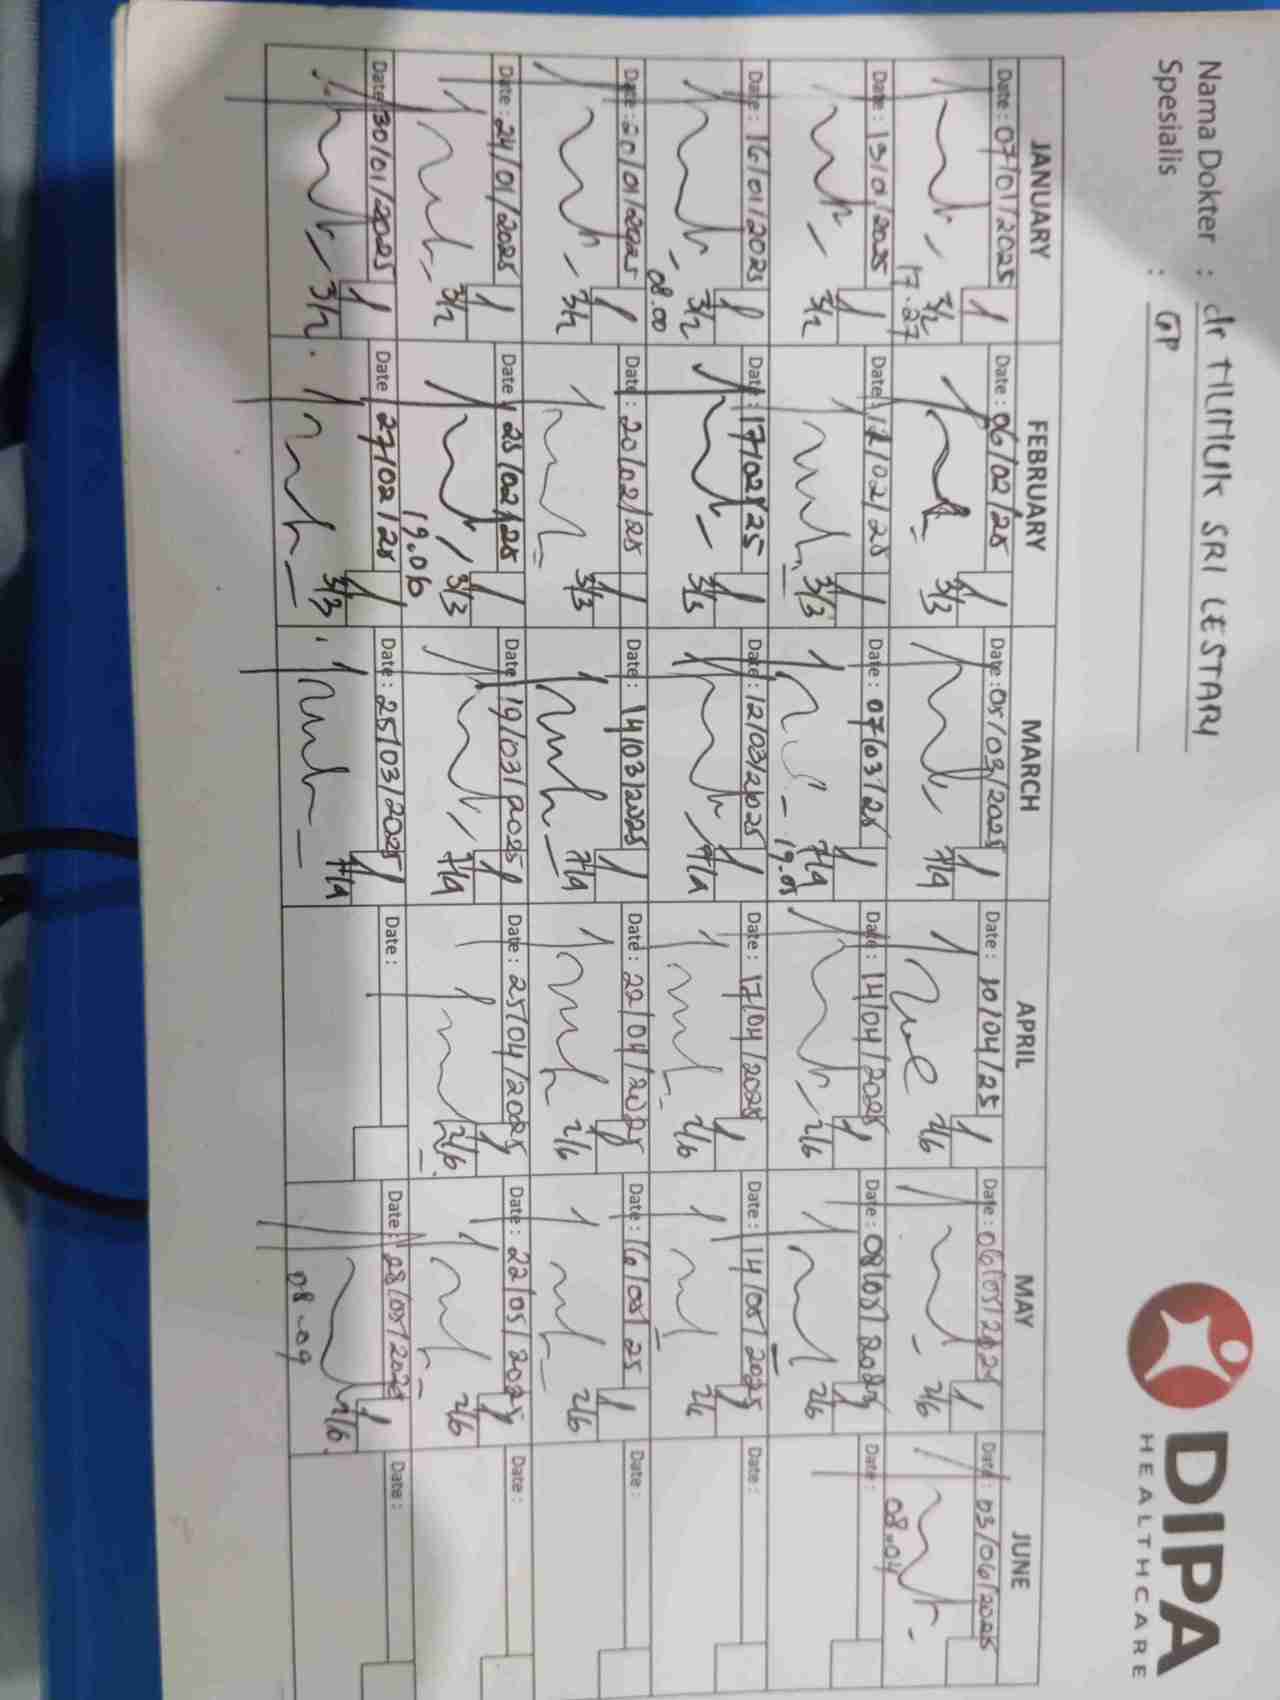 DIPA
HEALTHCARE
Nama Dokter : dr SRI LESTARI
Spesialis : GP
JANUARY FEBRUARY MARCH APRIL MAY JUNE
Date : 07/01/2025 1 Date : 06/02/25 1 Date : 05/03/2025 1 Date : 10/04/25 1 Date : 06/05/2025 1 Date : 03/06/2025
3/2 3/3 7/4 2/6 2/6
17.27 08.04
Date : 13/01/2025 1 Date : 12/02/25 1 Date : 07/03/25 1 Date : 14/04/2025 1 Date : 08/05/2025 1 Date :
3/2 3/3 7/4 2/6 2/6
19.05
Date : 16/01/2025 1 Date : 17/02/25 1 Date : 12/03/2025 1 Date : 17/04/2025 1 Date : 14/05/2025 1 Date :
3/2 3/3 7/4 2/6 2/6
08.00
Date : 20/01/2025 1 Date : 20/02/25 1 Date : 14/03/2025 1 Date : 22/04/2025 1 Date : 16/05/25 1 Date :
3/2 3/3 7/4 2/6 2/6
Date : 24/01/2025 1 Date : 25/02/25 1 Date : 19/03/2025 1 Date : 25/04/2025 1 Date : 22/05/2025 1 Date :
3/2 3/3 7/4 2/6 2/6
19.06
Date : 30/01/2025 1 Date : 27/02/25 1 Date : 25/03/2025 1 Date : Date : 28/05/2025 1 Date :
3/2 3/3 7/4 2/6
08.09